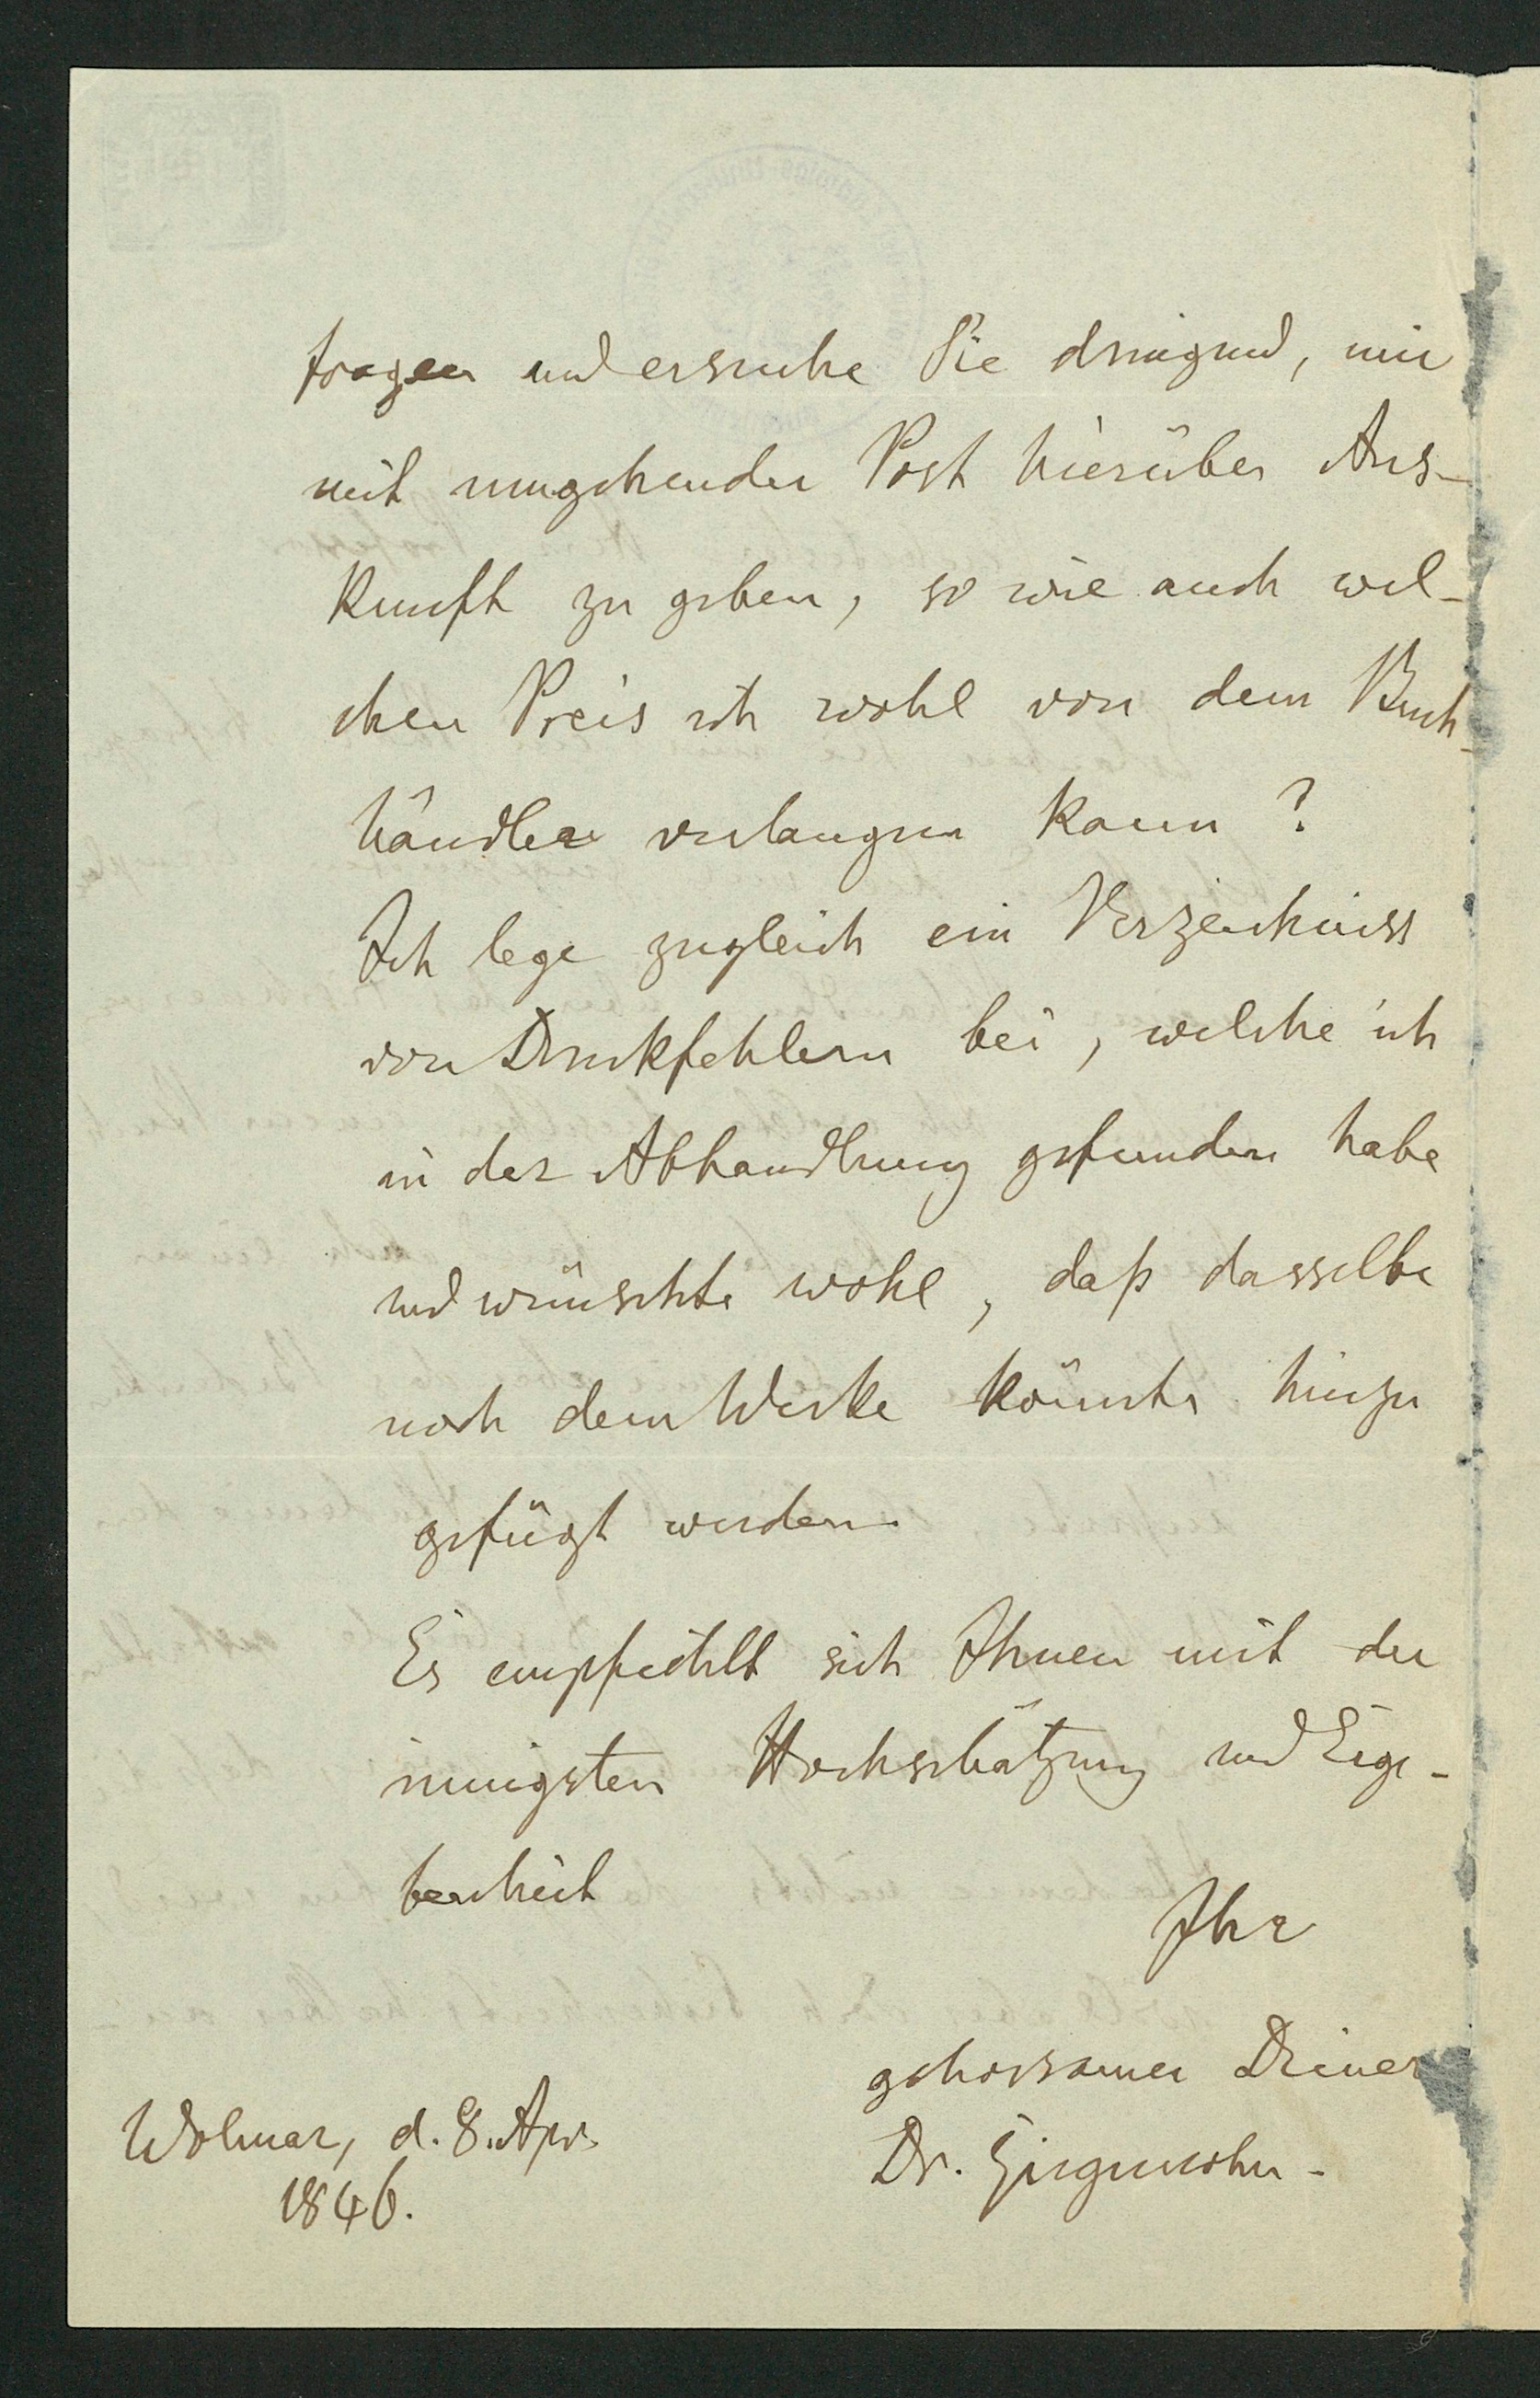 fragen und ersuche Sie dringend, mir
mit umgehender Post hierüber Aus-
kunft zu geben, so wie auch wel-
chen Preis ich wohl von dem Buch-
händler verlangen kann?
Ich lege zugleich ein Verzeichniss
von Druckfehlern bei, welche ich
in der Abhandlung gefunden habe
und wünschte wohl, daß dasselbe
noch dem Werke könnte hinzu
gefügt werden.
Es empfiehlt sich Ihnen mit der
innigsten Hochschätzung und Erge-
benheit
Ihr
gehorsamer Diener
Dr. Girgensohn.
Wolmar, d. 8. Apr.
1846.